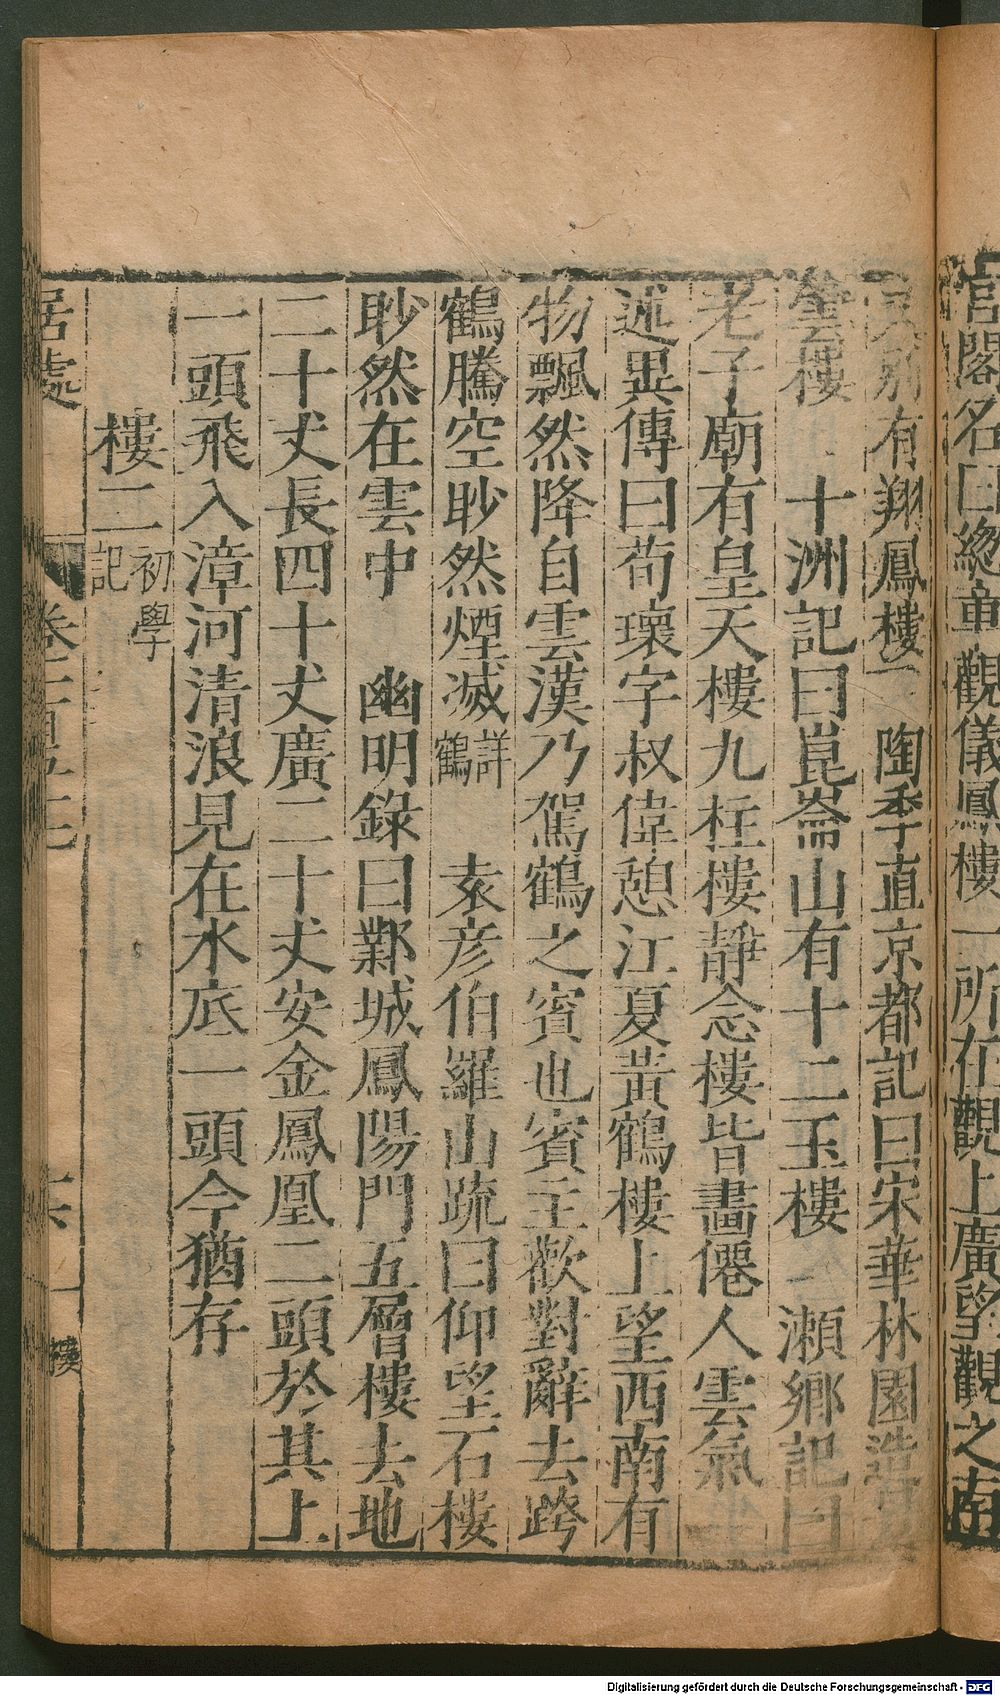 宮閣名曰緫章觀儀鳳樓一所在觀上廣望觀之南
又別有翔鳳樓 陶季直京都記曰宋華林園造
雲樓 十洲記曰崑崙山有十二玉樓 瀨鄉記曰
老子廟有皇天樓九柱樓靜念樓皆畫僊人雲氣
述異傳曰荀瓌字叔偉憩江夏黃鶴樓上望西南有
物飄然降自雲漢乃駕鶴之賓也賓主歡對辭去跨
鶴騰空眇然煙滅詳鶴 袁彥伯羅山疏曰仰望石樓
眇然在雲中 幽明錄曰鄴城鳳陽門五層樓去地
二十丈長四十丈廣二十丈安金鳳凰二頭於其上
一頭飛入漳河清浪見在水底一頭今猶存
樓二初學記
居處 卷三百四十七 十六 樓
Digitalisierung gefördert durch die Deutsche Forschungsgemeinschaft - DFG